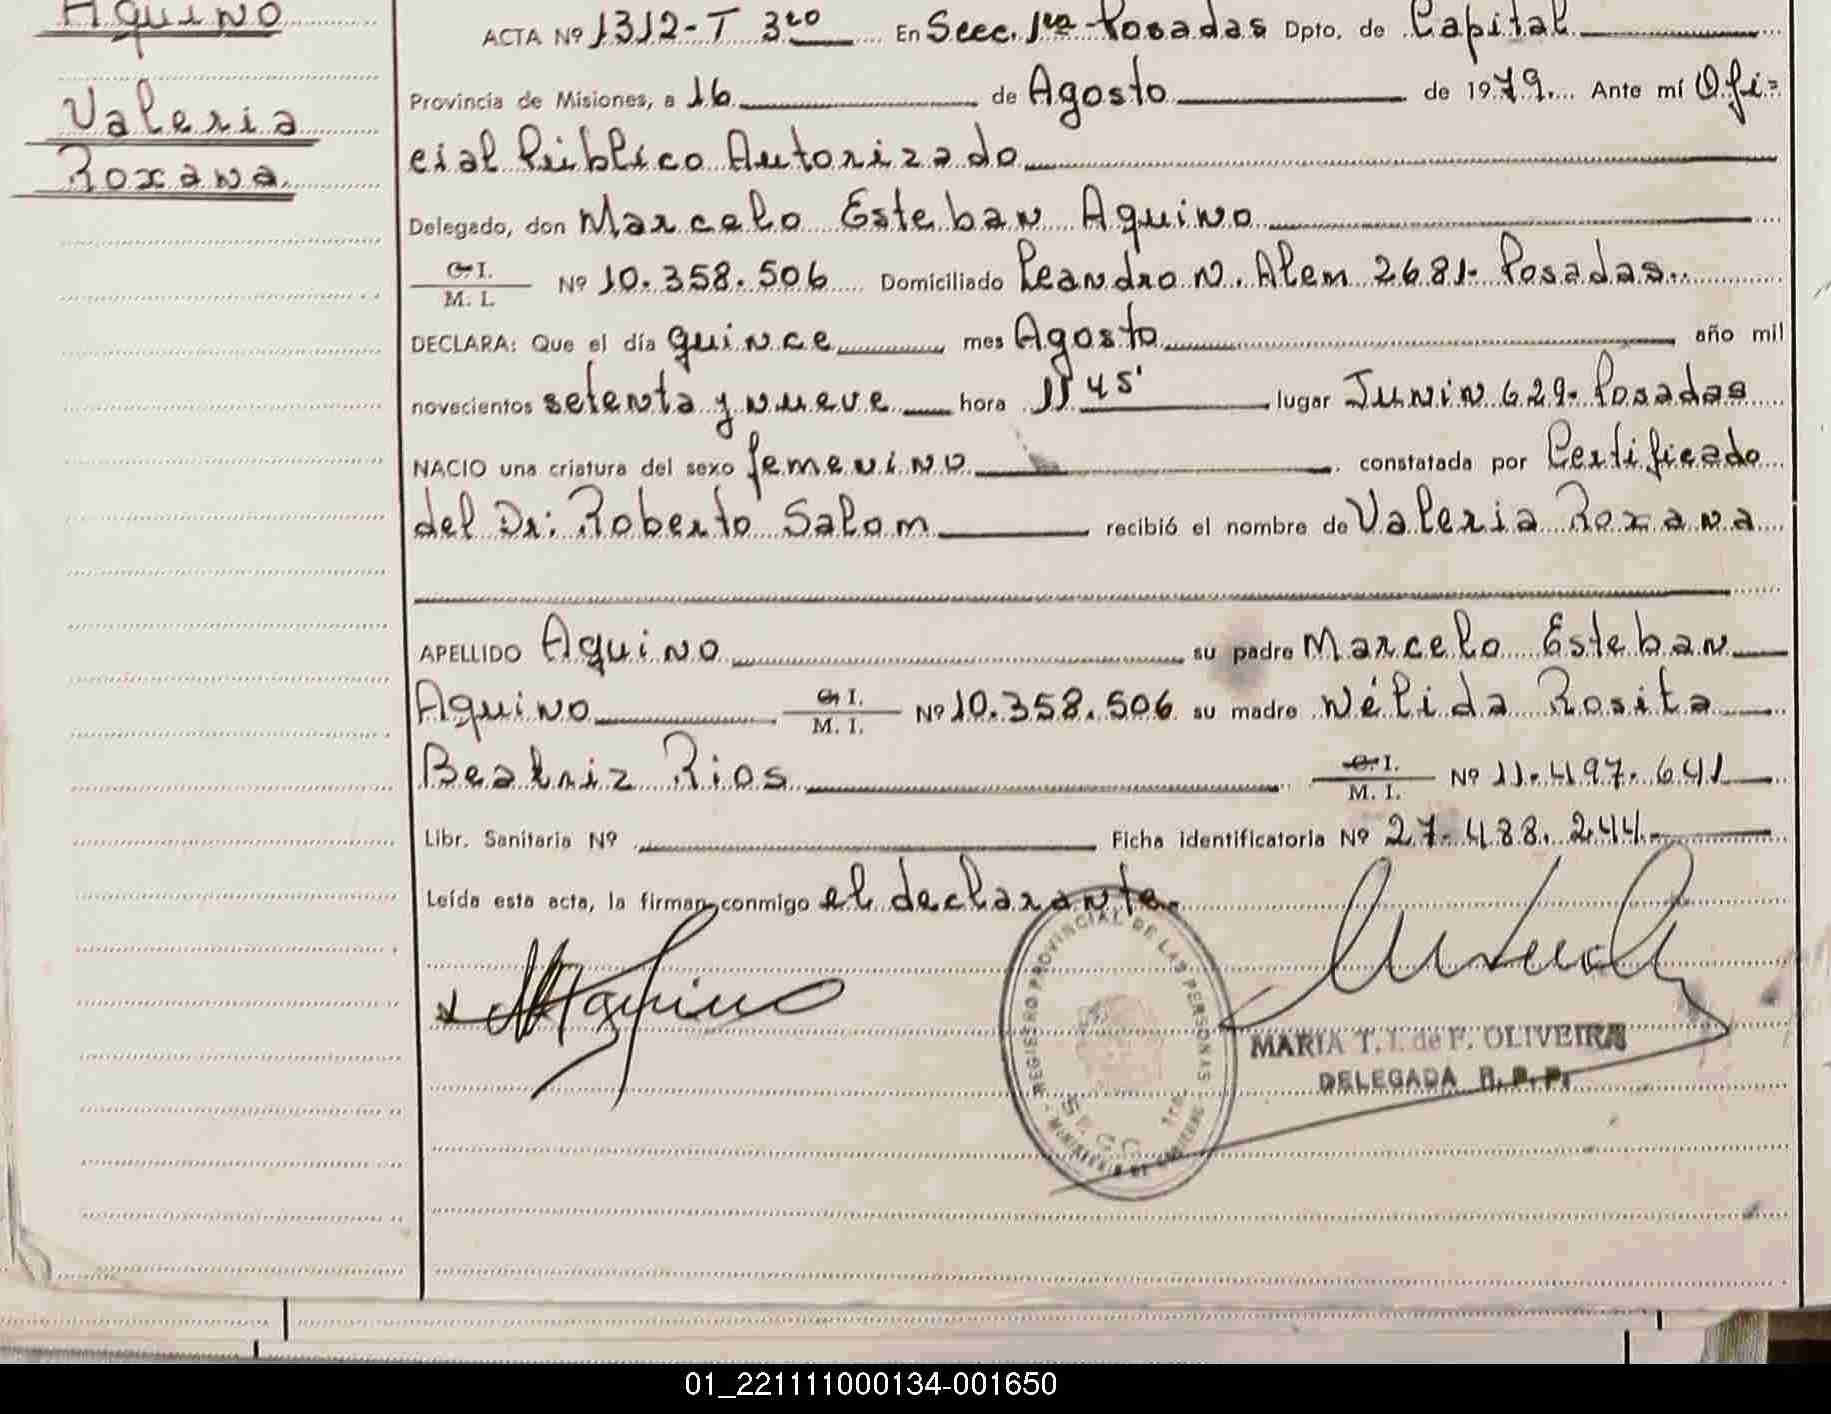 Aquino
Valeria
Roxana.
ACTA Nº 1312-T 3ro En Secc. 1ra Posadas Dpto. de Capital
Provincia de Misiones, a 16 de Agosto de 1979. Ante mí Ofi=
cial Público Autorizado
Delegado, don Marcelo Esteban Aquino
C. I.
M. I. Nº 10.358.506 Domiciliado Leandro N. Alem 2681- Posadas.
DECLARA: Que el día quince mes Agosto año mil
novecientos setenta y nueve hora 11 45' lugar Junin 629- Posadas
NACIO una criatura del sexo femenino constatada por Certificado
del Dr: Roberto Salom recibió el nombre de Valeria Roxana
APELLIDO Aquino su padre Marcelo Esteban
Aquino C. I.
M. I. Nº 10.358.506 su madre Nélida Rosita
Beatriz Rios C. I.
M. I. Nº 11.497.641
Libr. Sanitaria Nº Ficha identificatoria Nº 27.488.244.-
Leída esta acta, la firman conmigo el declarante.
Aquino
REGISTRO PROVINCIAL DE LAS PERSONAS
SECC. 1ra.
MINISTERIO DE GOBIERNO
MARIA T. I. de F. OLIVEIRA
DELEGADA R. P. P.
01_221111000134-001650